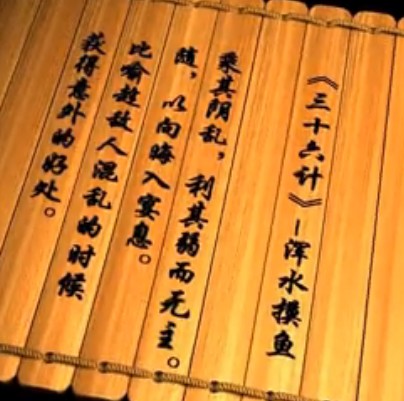 《三十六计》-浑水摸鱼
乘其阴乱，利其弱而无主。
随，以向晦入宴息。
比喻趁敌人混乱的时候
获得意外的好处。